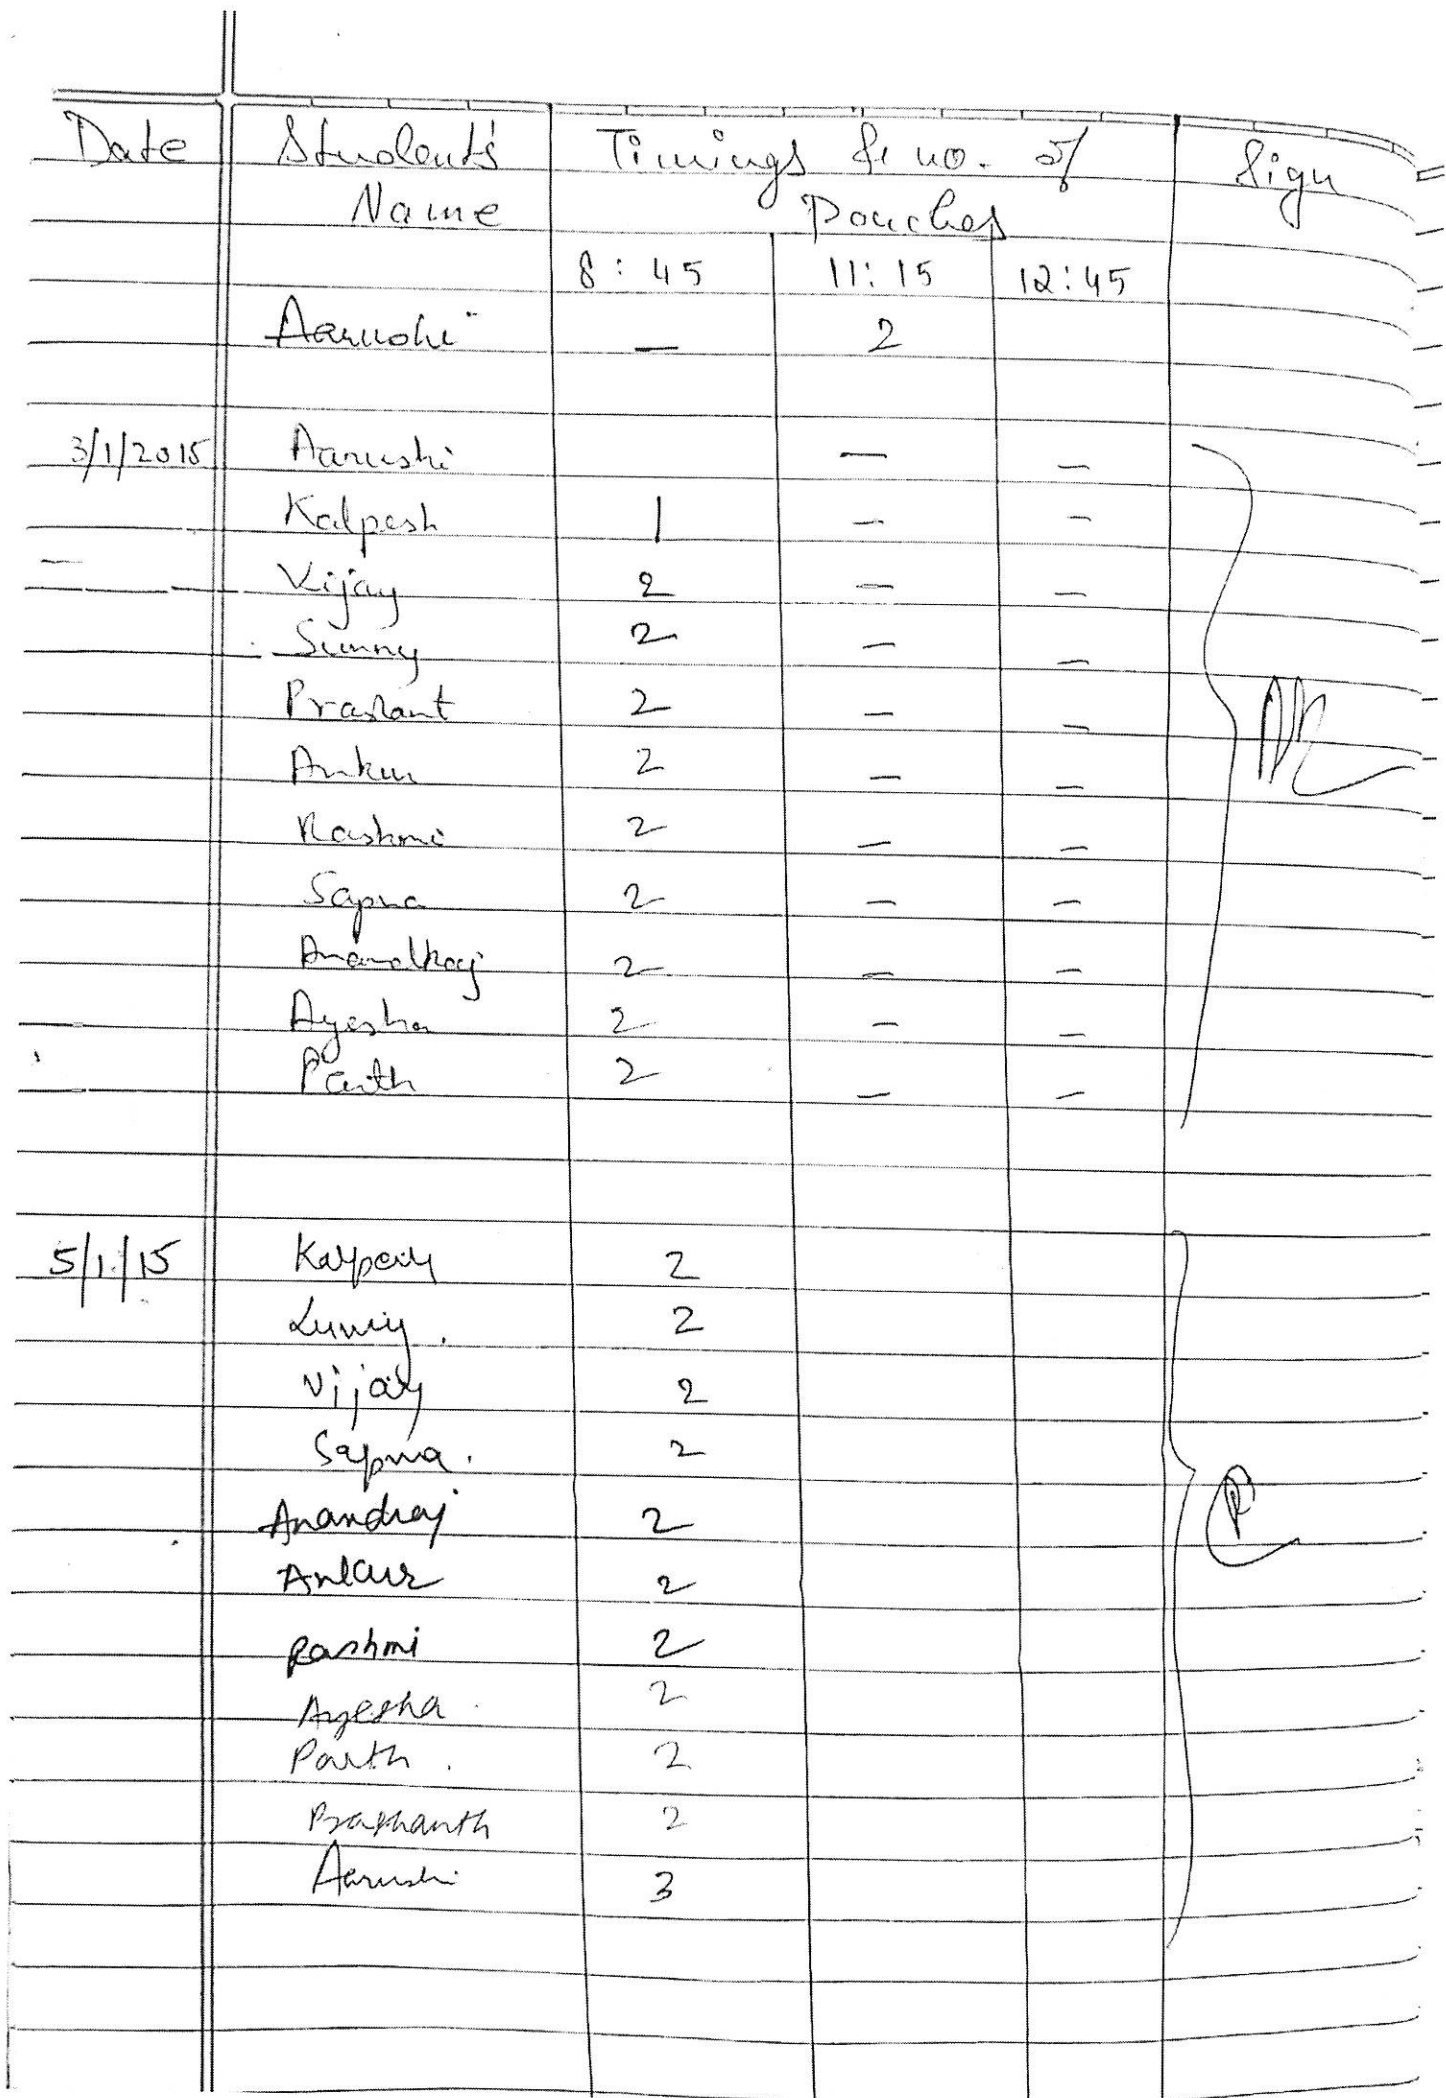 Date Student's Timings & no. of Sign
Name Pouches
8:45 11:15 12:45
Aarushi — 2
3/1/2015 Aarushi — —
Kalpesh 1 — —
Vijay 2 — —
Sunny 2 — —
Prashant 2 — —
Ankur 2 — —
Rashmi 2 — —
Sapna 2 — —
Anandraj 2 — —
Ayesha 2 — —
Parth 2 — —
5/1/15 Kalpesh 2
Sunny. 2
Vijay 2
Sapna. 2
Anandraj 2
Ankur 2
Rashmi 2
Ayesha. 2
Parth. 2
Prashanth 2
Aarushi 3